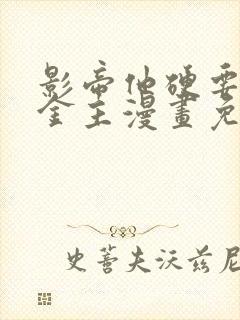 影帝他硬要
金主漫畫免
史蒂夫沃兹尼